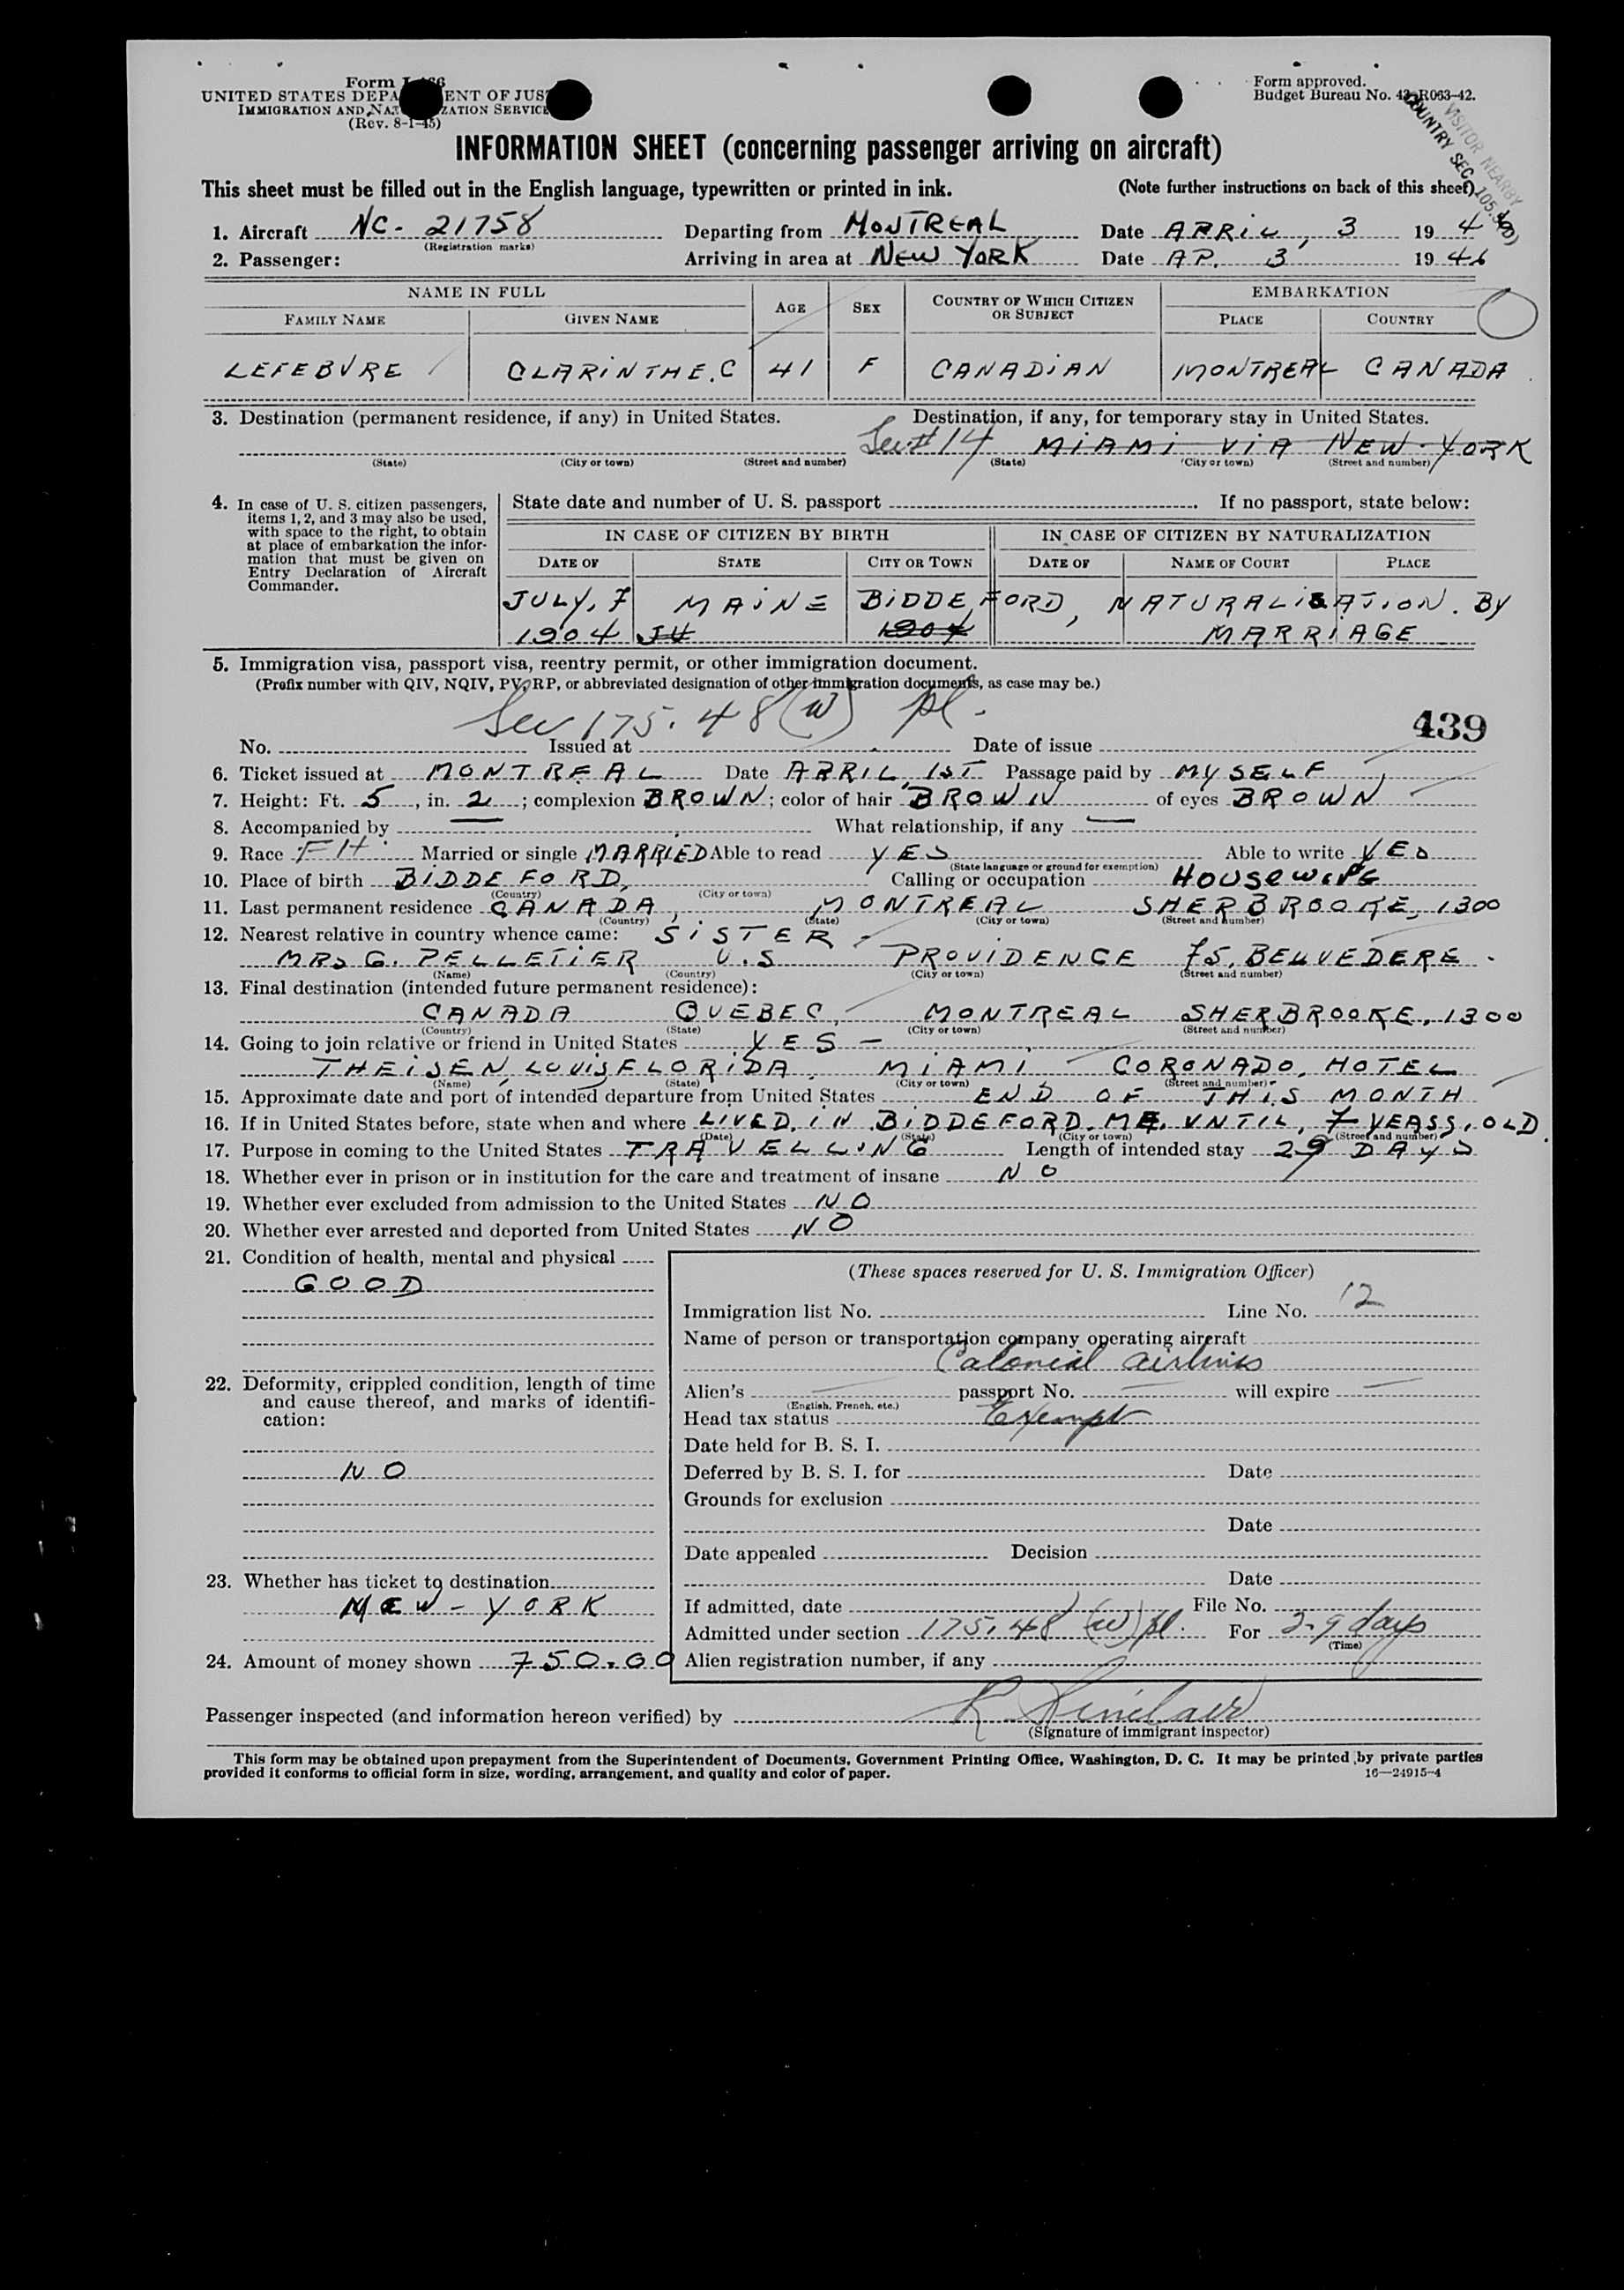 Form I-466
UNITED STATES DEPA ENT OF JUS
IMMIGRATION AND NA ZATION SERVICE
(Rev. 8-1-45)
Form approved.
Budget Bureau No. 43-R063-42.
VISITOR NEARBY
COUNTRY SEC. 105.3(D)
INFORMATION SHEET (concerning passenger arriving on aircraft)
This sheet must be filled out in the English language, typewritten or printed in ink. (Note further instructions on back of this sheet)
1. Aircraft NC- 21758 Departing from MONTREAL Date APRIL, 3 19 46
(Registration marks)
2. Passenger: Arriving in area at NEW YORK Date AP. 3 19 46
NAME IN FULL AGE SEX COUNTRY OF WHICH CITIZEN OR SUBJECT EMBARKATION
FAMILY NAME GIVEN NAME PLACE COUNTRY
LEFEBVRE CLARINTHE.C 41 F CANADIAN MONTREAL CANADA
3. Destination (permanent residence, if any) in United States. Destination, if any, for temporary stay in United States.
See # 14 MIAMI VIA NEW-YORK
(State) (City or town) (Street and number) (State) (City or town) (Street and number)
4. In case of U. S. citizen passengers, items 1, 2, and 3 may also be used, with space to the right, to obtain at place of embarkation the information that must be given on Entry Declaration of Aircraft Commander.
State date and number of U. S. passport If no passport, state below:
IN CASE OF CITIZEN BY BIRTH IN CASE OF CITIZEN BY NATURALIZATION
DATE OF STATE CITY OR TOWN DATE OF NAME OF COURT PLACE
JULY, 7 MAINE BIDDEFORD, NATURALISATION. By
1904 JU 1904 MARRIAGE
5. Immigration visa, passport visa, reentry permit, or other immigration document.
(Prefix number with QIV, NQIV, PV, RP, or abbreviated designation of other immigration documents, as case may be.)
Sec 175.48 (w) pl.
439
No. Issued at Date of issue
6. Ticket issued at MONTREAL Date APRIL, 1ST Passage paid by MYSELF
7. Height: Ft. 5, in. 2; complexion BROWN; color of hair BROWN of eyes BROWN
8. Accompanied by — What relationship, if any —
9. Race FH Married or single MARRIED Able to read YES Able to write YES
(State language or ground for exemption)
10. Place of birth BIDDEFORD, Calling or occupation HOUSEWIFE
(Country) (City or town)
11. Last permanent residence CANADA, MONTREAL SHERBROOKE, 1300
(Country) (State) (City or town) (Street and number)
12. Nearest relative in country whence came: SISTER -
MRS G. PELLETIER U.S PROVIDENCE 75, BELLVEDERE.
(Name) (Country) (City or town) (Street and number)
13. Final destination (intended future permanent residence):
CANADA QUEBEC, MONTREAL SHERBROOKE, 1300
(Country) (State) (City or town) (Street and number)
14. Going to join relative or friend in United States YES -
THEISEN, LOUIS FLORIDA, MIAMI - CORONADO, HOTEL
(Name) (State) (City or town) (Street and number)
15. Approximate date and port of intended departure from United States END OF THIS MONTH
16. If in United States before, state when and where LIVED, IN BIDDEFORD. ME. UNTIL, 7 YEASS, OLD.
(Date) (State) (City or town) (Street and number)
17. Purpose in coming to the United States TRAVELLING Length of intended stay 29 DAYS
18. Whether ever in prison or in institution for the care and treatment of insane NO
19. Whether ever excluded from admission to the United States NO
20. Whether ever arrested and deported from United States NO
21. Condition of health, mental and physical
GOOD
22. Deformity, crippled condition, length of time and cause thereof, and marks of identification:
NO
23. Whether has ticket to destination
NEW-YORK
24. Amount of money shown 750.00
(These spaces reserved for U. S. Immigration Officer)
Immigration list No. Line No. 12
Name of person or transportation company operating aircraft
Colonial Airlines
Alien's — passport No. — will expire —
(English, French, etc.)
Head tax status Exempt
Date held for B. S. I.
Deferred by B. S. I. for Date
Grounds for exclusion
Date
Date appealed Decision
Date
If admitted, date File No.
Admitted under section 175.48 (w) pl. For 29 days
(Time)
Alien registration number, if any
Passenger inspected (and information hereon verified) by R Sinclair
(Signature of immigrant inspector)
This form may be obtained upon prepayment from the Superintendent of Documents, Government Printing Office, Washington, D. C. It may be printed by private parties
provided it conforms to official form in size, wording, arrangement, and quality and color of paper. 16—24915-4